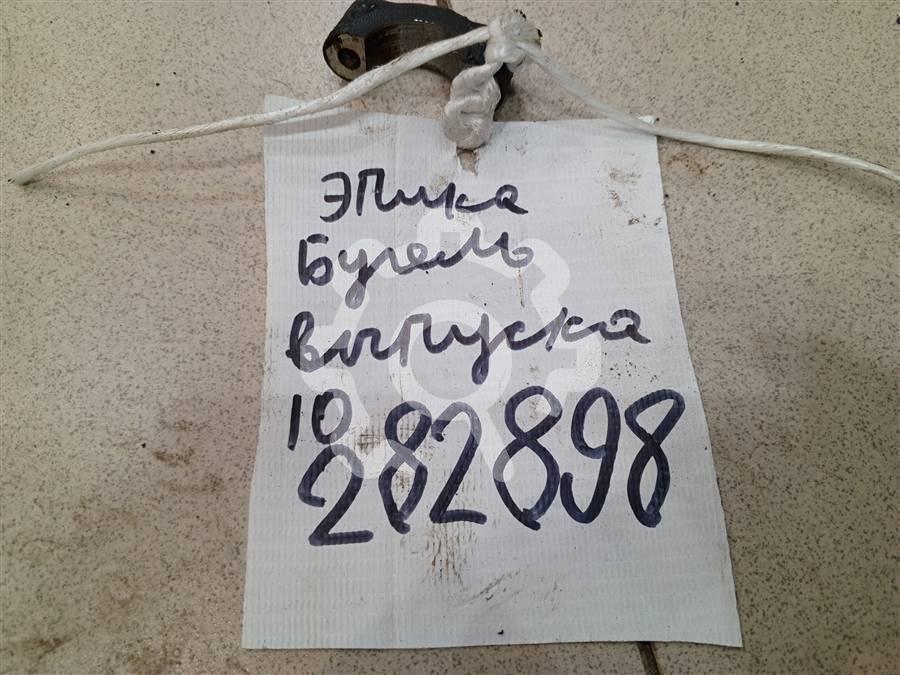 Эпика
Бугель
выпуска
10
282898